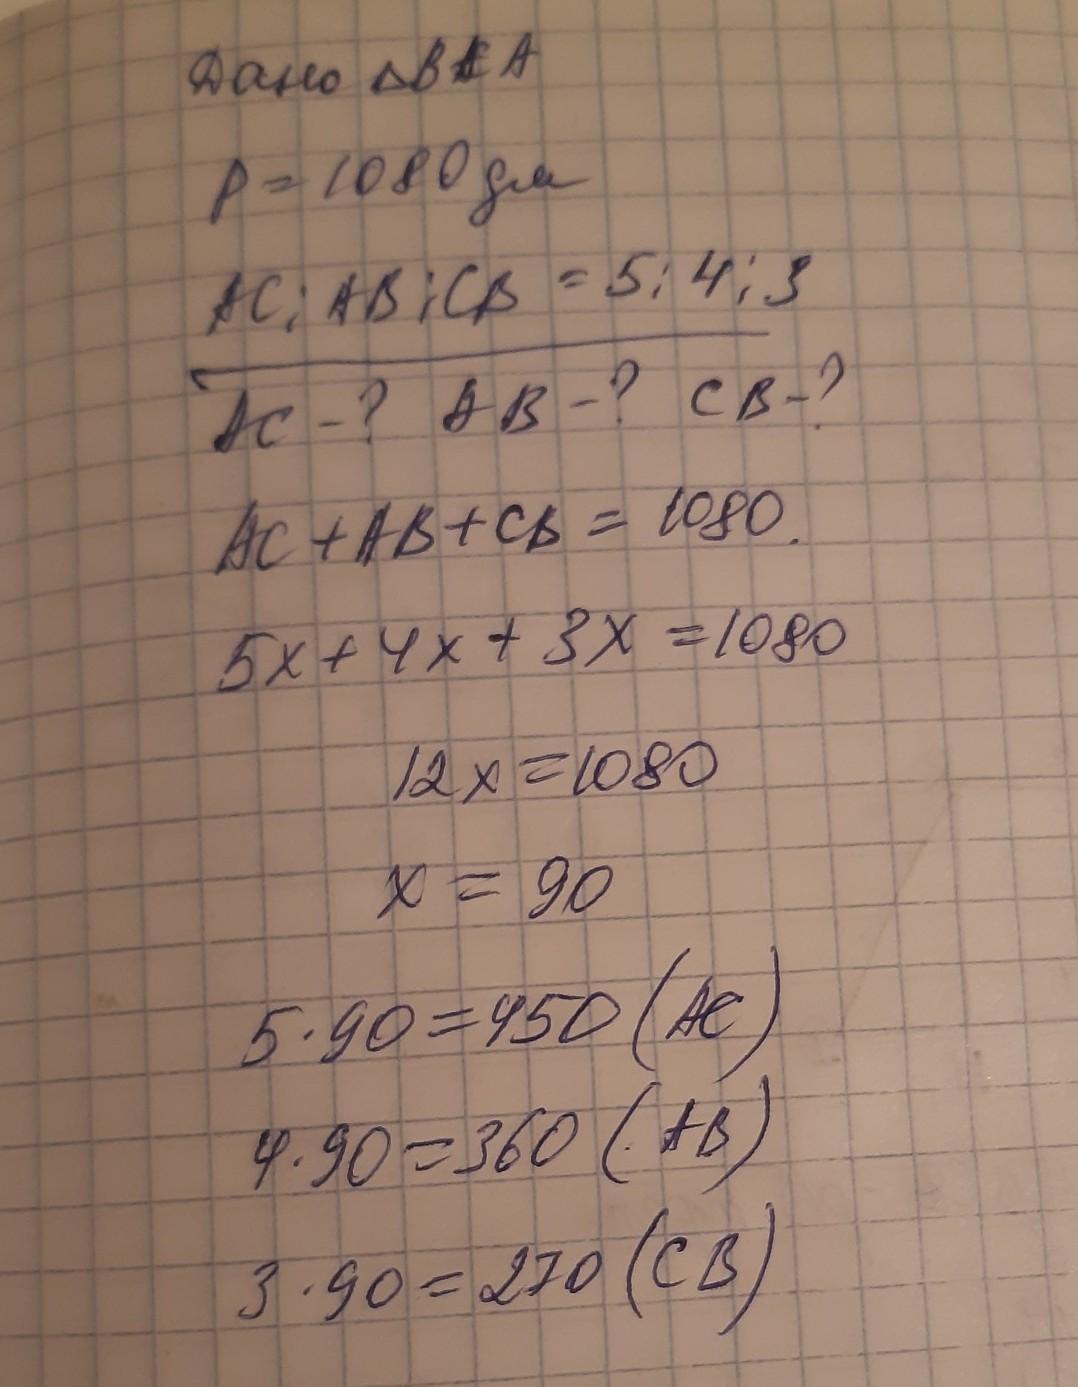 Дано △BCA
P = 1080 дм
AC : AB : CB = 5 : 4 : 3
AC - ? AB - ? CB - ?
AC + AB + CB = 1080.
5x + 4x + 3x = 1080
12x = 1080
x = 90
5 · 90 = 450 (AC)
4 · 90 = 360 (AB)
3 · 90 = 270 (CB)